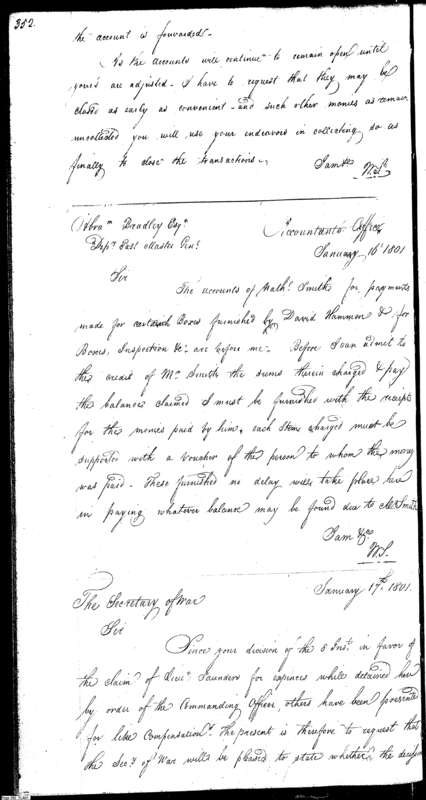 352.
the account is forwarded.
As the accounts will continue to remain open until
yours are adjusted - I have to request that they may be
closed as early as convenient - and such other monies as remain
uncollected you will use your endeavors in collecting so as
finally to close the transactions.
I am &c
W.S.
Abram Bradley Esqr.
Depy. Post Master Genl.
Accountants Office
January 16th 1801
Sir
The accounts of Nathl. Smith for payments
made for Boxes furnished by David Hammon & for
Boxes, Inspection &c. are before me. Before I can admit to
the credit of Mr. Smith the sums therein charged & pay
the balance claimed I must be furnished with the receipts
for the monies paid by him, each Item charged must be
supported with a Voucher of the person to whom the money
was paid - These furnished no delay will take place here
in paying whatever balance may be found due to Mr Smith
I am &c
W.S.
January 17th. 1801.
The Secretary of War
Sir
Since your decision of the 5 Inst. in favor of
the claim of Lieut. Saunders for expences while detained here
by order of the Commanding Officer, others have been presented
for like Compensation. The present is therefore to request that
the Secy. of War will be pleased to state whether the decision